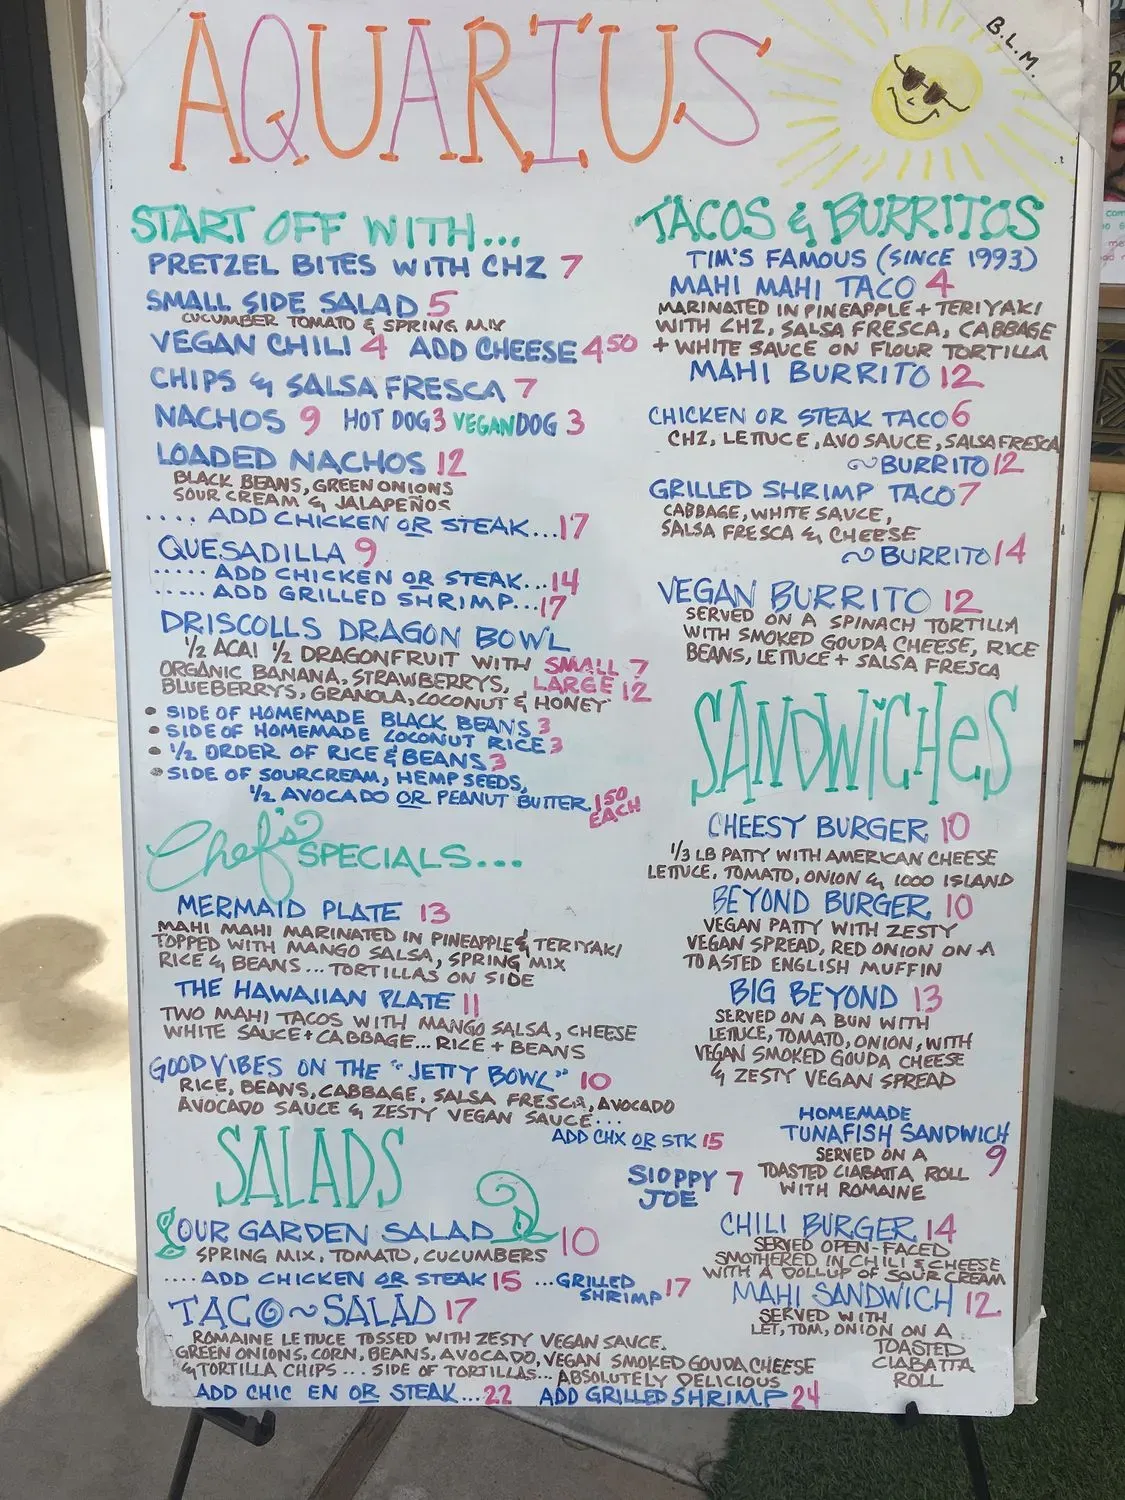 AQUARIUS
B.L.M.
START OFF WITH...
PRETZEL BITES WITH CHZ 7
SMALL SIDE SALAD 5
CUCUMBER TOMATO & SPRING MIX
VEGAN CHILI 4 ADD CHEESE 4 50
CHIPS & SALSA FRESCA 7
NACHOS 9 HOT DOG 3 VEGAN DOG 3
LOADED NACHOS 12
BLACK BEANS, GREEN ONIONS
SOUR CREAM & JALAPEÑOS
.... ADD CHICKEN OR STEAK...17
QUESADILLA 9
..... ADD CHICKEN OR STEAK...14
..... ADD GRILLED SHRIMP...17
DRISCOLLS DRAGON BOWL
1/2 ACAI 1/2 DRAGONFRUIT WITH SMALL 7
ORGANIC BANANA, STRAWBERRYS, LARGE 12
BLUEBERRYS, GRANOLA, COCONUT & HONEY
• SIDE OF HOMEMADE BLACK BEANS 3
• SIDE OF HOMEMADE COCONUT RICE 3
• 1/2 ORDER OF RICE & BEANS 3
• SIDE OF SOURCREAM, HEMP SEEDS,
1/2 AVOCADO OR PEANUT BUTTER 1 50
EACH
Chef's SPECIALS...
MERMAID PLATE 13
MAHI MAHI MARINATED IN PINEAPPLE & TERIYAKI
TOPPED WITH MANGO SALSA, SPRING MIX
RICE & BEANS... TORTILLAS ON SIDE
THE HAWAIIAN PLATE 11
TWO MAHI TACOS WITH MANGO SALSA, CHEESE
WHITE SAUCE + CABBAGE... RICE + BEANS
GOOD VIBES ON THE "JETTY BOWL" 10
RICE, BEANS, CABBAGE, SALSA FRESCA, AVOCADO
AVOCADO SAUCE & ZESTY VEGAN SAUCE...
ADD CHX OR STK 15
SALADS
OUR GARDEN SALAD 10
SPRING MIX, TOMATO, CUCUMBERS
.... ADD CHICKEN OR STEAK 15 ...GRILLED SHRIMP 17
TACO~SALAD 17
ROMAINE LETTUCE TOSSED WITH ZESTY VEGAN SAUCE.
GREEN ONIONS, CORN, BEANS, AVOCADO, VEGAN SMOKED GOUDA CHEESE
& TORTILLA CHIPS ... SIDE OF TORTILLAS... ABSOLUTELY DELICIOUS
ADD CHIC EN OR STEAK...22 ADD GRILLED SHRIMP 24
TACOS & BURRITOS
TIM'S FAMOUS (SINCE 1993)
MAHI MAHI TACO 4
MARINATED IN PINEAPPLE + TERIYAKI
WITH CHZ, SALSA FRESCA, CABBAGE
+ WHITE SAUCE ON FLOUR TORTILLA
MAHI BURRITO 12
CHICKEN OR STEAK TACO 6
CHZ, LETTUCE, AVO SAUCE, SALSA FRESCA
~BURRITO 12
GRILLED SHRIMP TACO 7
CABBAGE, WHITE SAUCE,
SALSA FRESCA & CHEESE
~BURRITO 14
VEGAN BURRITO 12
SERVED ON A SPINACH TORTILLA
WITH SMOKED GOUDA CHEESE, RICE
BEANS, LETTUCE + SALSA FRESCA
SANDWiCHeS
CHEESY BURGER 10
1/3 LB PATTY WITH AMERICAN CHEESE
LETTUCE, TOMATO, ONION & 1000 ISLAND
BEYOND BURGER 10
VEGAN PATTY WITH ZESTY
VEGAN SPREAD, RED ONION ON A
TOASTED ENGLISH MUFFIN
BIG BEYOND 13
SERVED ON A BUN WITH
LETTUCE, TOMATO, ONION, WITH
VEGAN SMOKED GOUDA CHEESE
& ZESTY VEGAN SPREAD
HOMEMADE
TUNAFISH SANDWICH 9
SERVED ON A
TOASTED CIABATTA ROLL
WITH ROMAINE
SLOPPY JOE 7
CHILI BURGER 14
SERVED OPEN-FACED
SMOTHERED IN CHILI & CHEESE
WITH A DOLLUP OF SOUR CREAM
MAHI SANDWICH 12
SERVED WITH
LET, TOM, ONION ON A
TOASTED
CIABATTA
ROLL